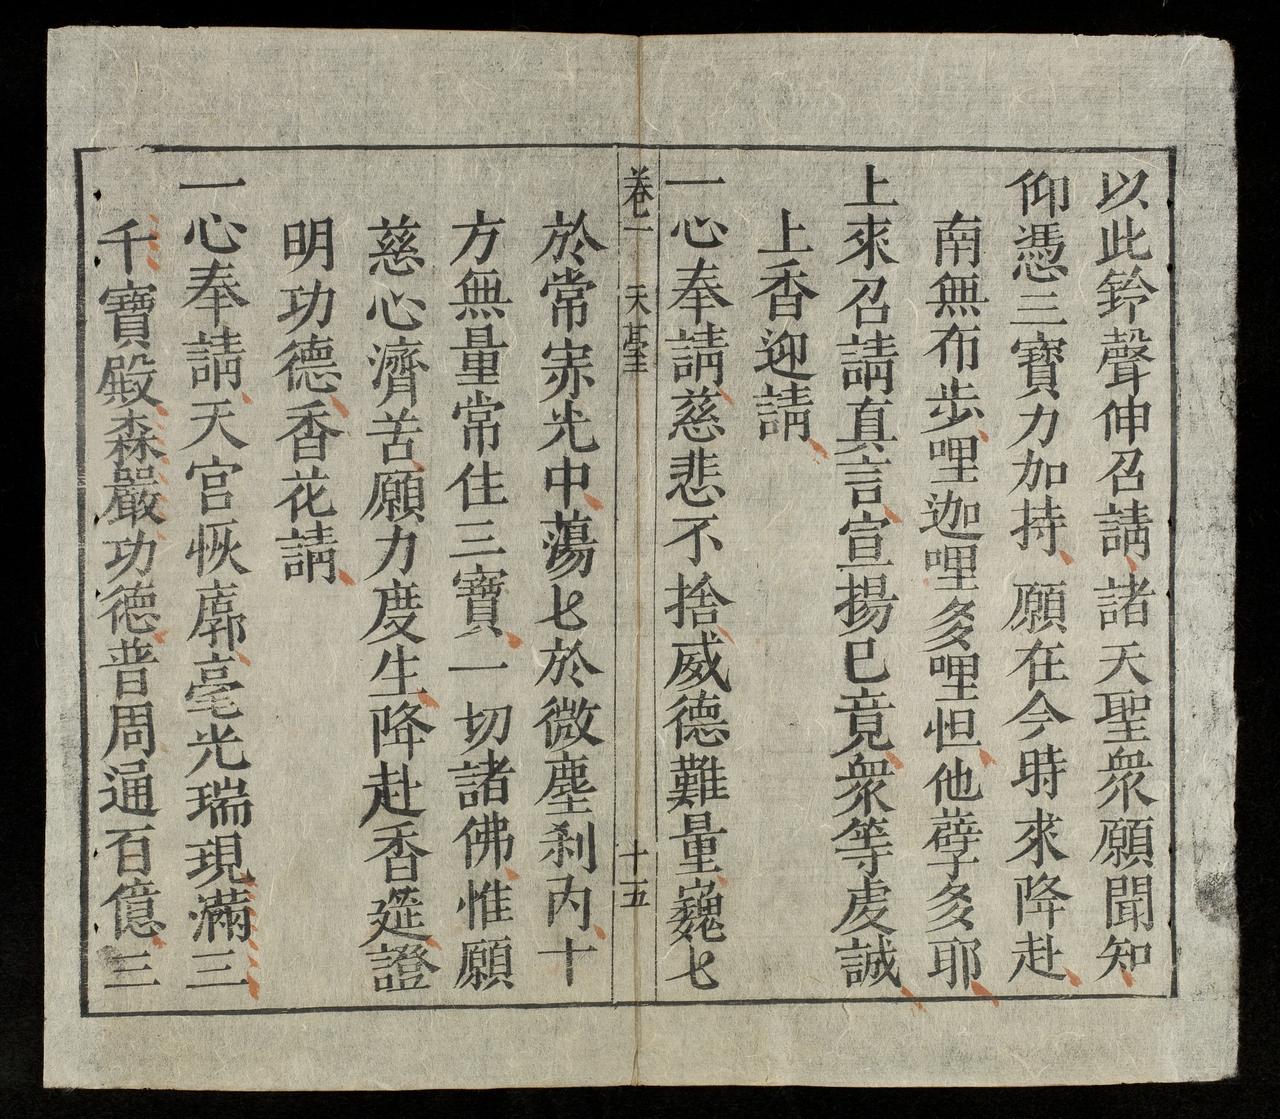 以此鈴聲伸召請諸天聖衆願聞知
仰憑三寶力加持願在今時求降赴
南無布步哩迦哩多哩怛他蘖多耶
上來召請真言宣揚已竟衆等虔誠
上香迎請
一心奉請慈悲不捨威德難量巍七
卷一 天臺 十五
於常寂光中蕩七於微塵刹內十
方無量常住三寶一切諸佛惟願
慈心濟苦願力度生降赴香筵證
明功德香花請
一心奉請天宮恢廓毫光瑞現滿三
千寶殿森嚴功德普周通百億三